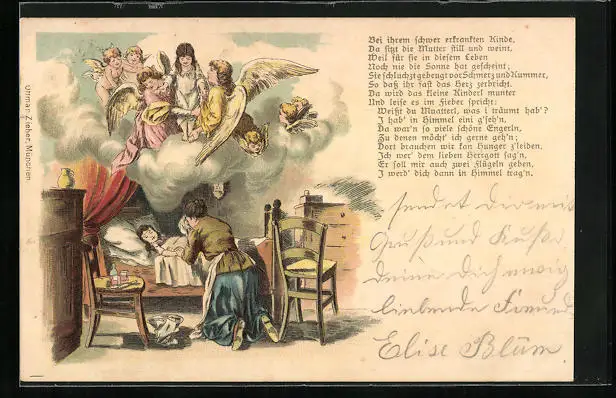 Bei ihrem schwer erkrankten Kinde,
Da sitzt die Mutter still und weint,
Weil für sie in diesem Leben
Noch nie die Sonne hat gescheint;
Sie schluchzt gebeugt vor Schmerz und Kummer,
So daß ihr fast das Herz zerbricht.
Da wird das kleine Kinderl munter
Und leise es im Fieber spricht:
Weißt du Muatterl, was i träumt hab'?
I hab' in Himmel eini g'seh'n,
Da war'n so viele schöne Engerln,
Zu denen möcht' ich gerne geh'n;
Dort brauchen wir kan Hunger z'leiden,
Ich wer' dem lieben Herrgott sag'n,
Er soll mir auch zwei Flügeln geben,
I werd' dich dann in Himmel trag'n.
sendet Dir mit
Gruß und Kuß
deine Dich ewig
liebende Freund
Elise Blüm
Ottmar Zieher, München